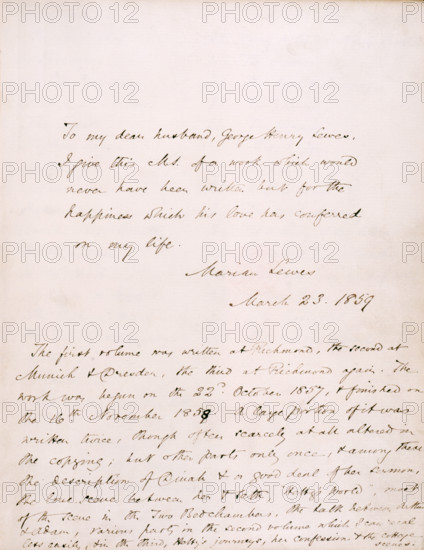 To my dear husband, George Henry Lewes,
I give this MS. of a work which would
never have been written but for the
happiness which his love has conferred
on my life.
Marian Lewes
March 23. 1859
The first volume was written at Richmond, the second at
Munich & Dresden, the third at Richmond again. The
work was begun on the 22d October 1857, & finished on
the 16th November 1858. A large portion of it was
written twice, though often scarcely at all altered in
the copying; but other parts only once, & among these
the description of Dinah & a good deal of her sermon,
the love scene between her & Seth, "Hetty's World", most
of the scene in the Two Bedchambers, the talk between
& Adam, various parts in the second volume which I can recal
less easily, & in the third, Hetty's journeys, her confession & the cottage
scenes.
PHOTO12